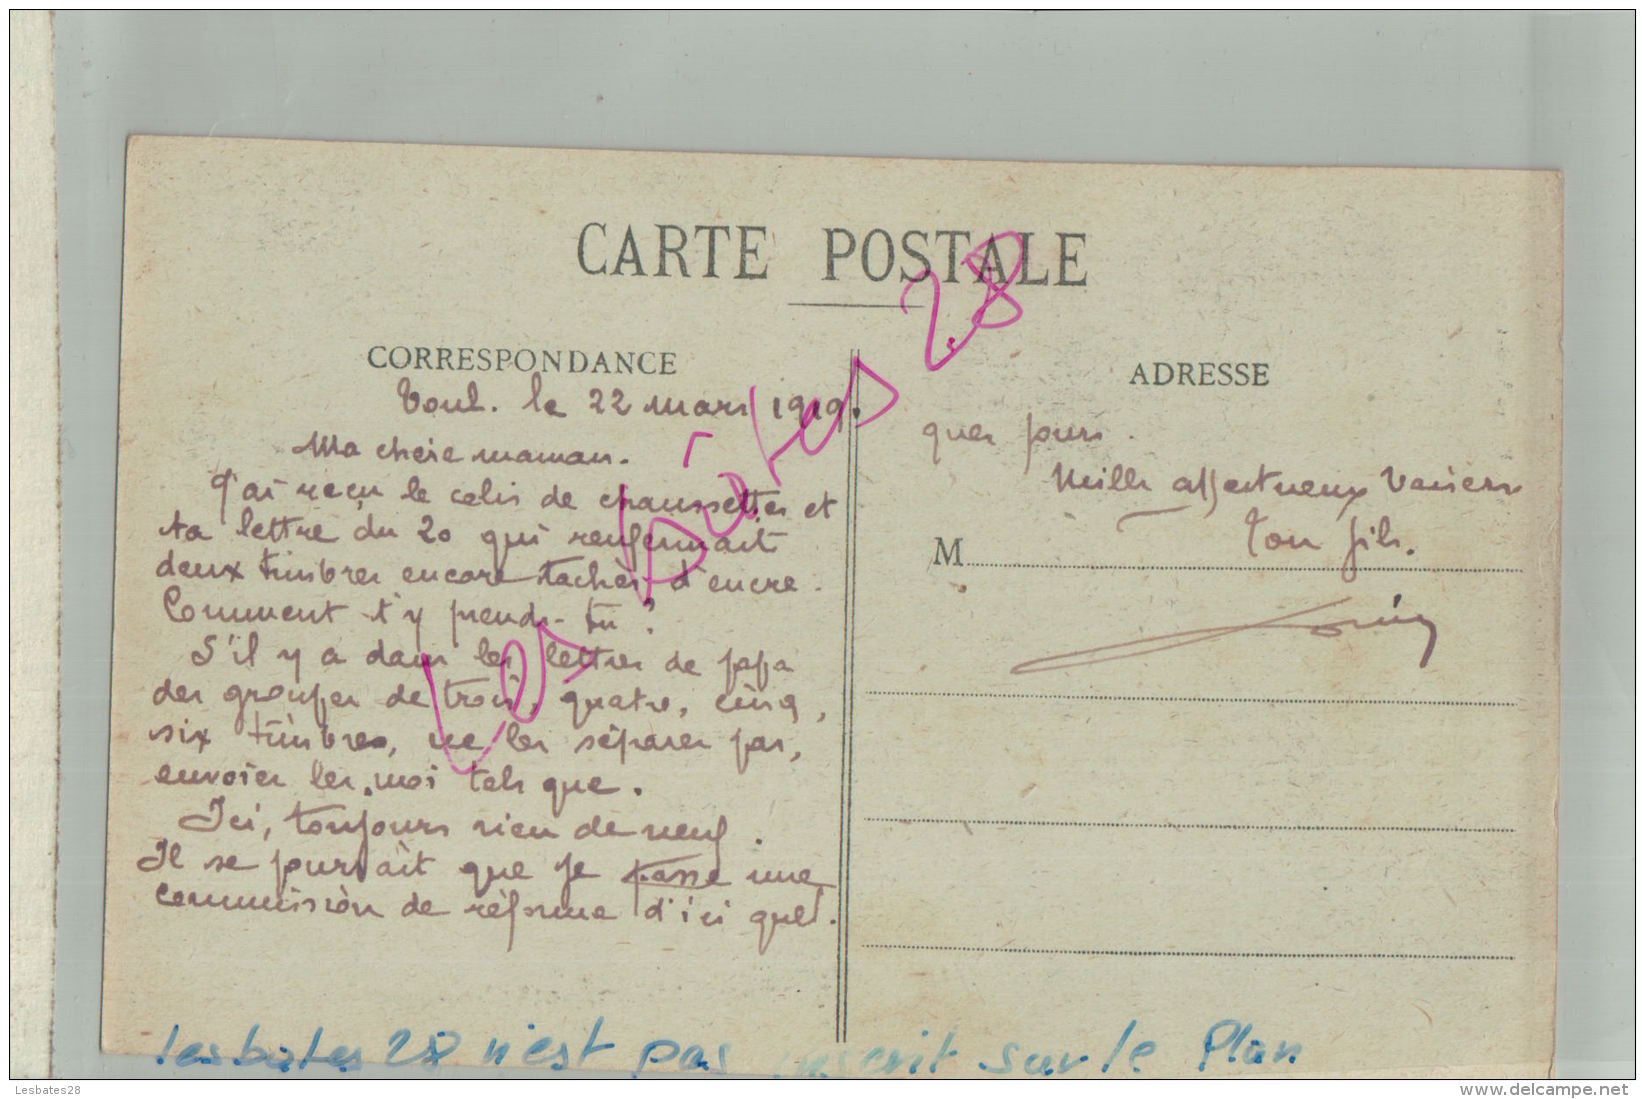 CARTE POSTALE
CORRESPONDANCE
Toul. le 22 mars 1919.
Ma chère maman.
J'ai reçu le colis de chaussettes et
ta lettre du 20 qui renfermait
deux timbres encore tachés d'encre.
Comment t'y prends-tu ?
S'il y a dans les lettres de papa
des groupes de trois, quatre, cinq,
six timbres, ne les séparer pas,
envoies les moi tels que.
Ici, toujours rien de neuf.
Il se pourrait que je passe une
commission de réforme d'ici quel.
ADRESSE
ques jours.
Mille affectueux baisers
Ton fils.
M
Les bates 28
Les bates 28 n'est pas inscrit sur le Plan
Lesbates28
www.delcampe.net